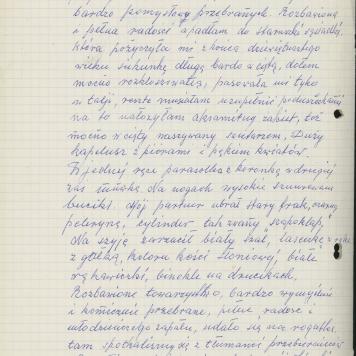 bardzo pomysłowo przebranych. Rozbawiona
i pełna radości wpadłam do starszej sąsiadki,
która pożyczyła mi z końca dziewiętnastego
wieku suknię długą bardo wciętą, dołem
mocno rozkloszowaną, pasowała mi tyko
w talji, resztę musiałam uzupełnić poduszkami
na to nałożyłam aksamitny żakiet, też
mocno wcięty naszywany sutaszem, Duży
kapelusz z piórami i pękiem kwiatów.
W jednej ręce parasolka z koronką w drugiej
zaś Na nogach wysokie sznurowane
buciki. Mój partner ubrał stary frak, czarną
pelerynę, cylinder tak zwany szapoklak,
Na szyję zarzucił biały szal, laseczkę w ręku
z gałką, koloru kości słoniowej, białe
rękawiczki, binokle na drucikach,
Rozbawione towarzystwo, bardzo wymyślnie
i komicznie przebrane, pełne radości i
młodzieńczego zapału, udało się na rogatkę
tam spotkaliśmy się z tłumami przebierańców